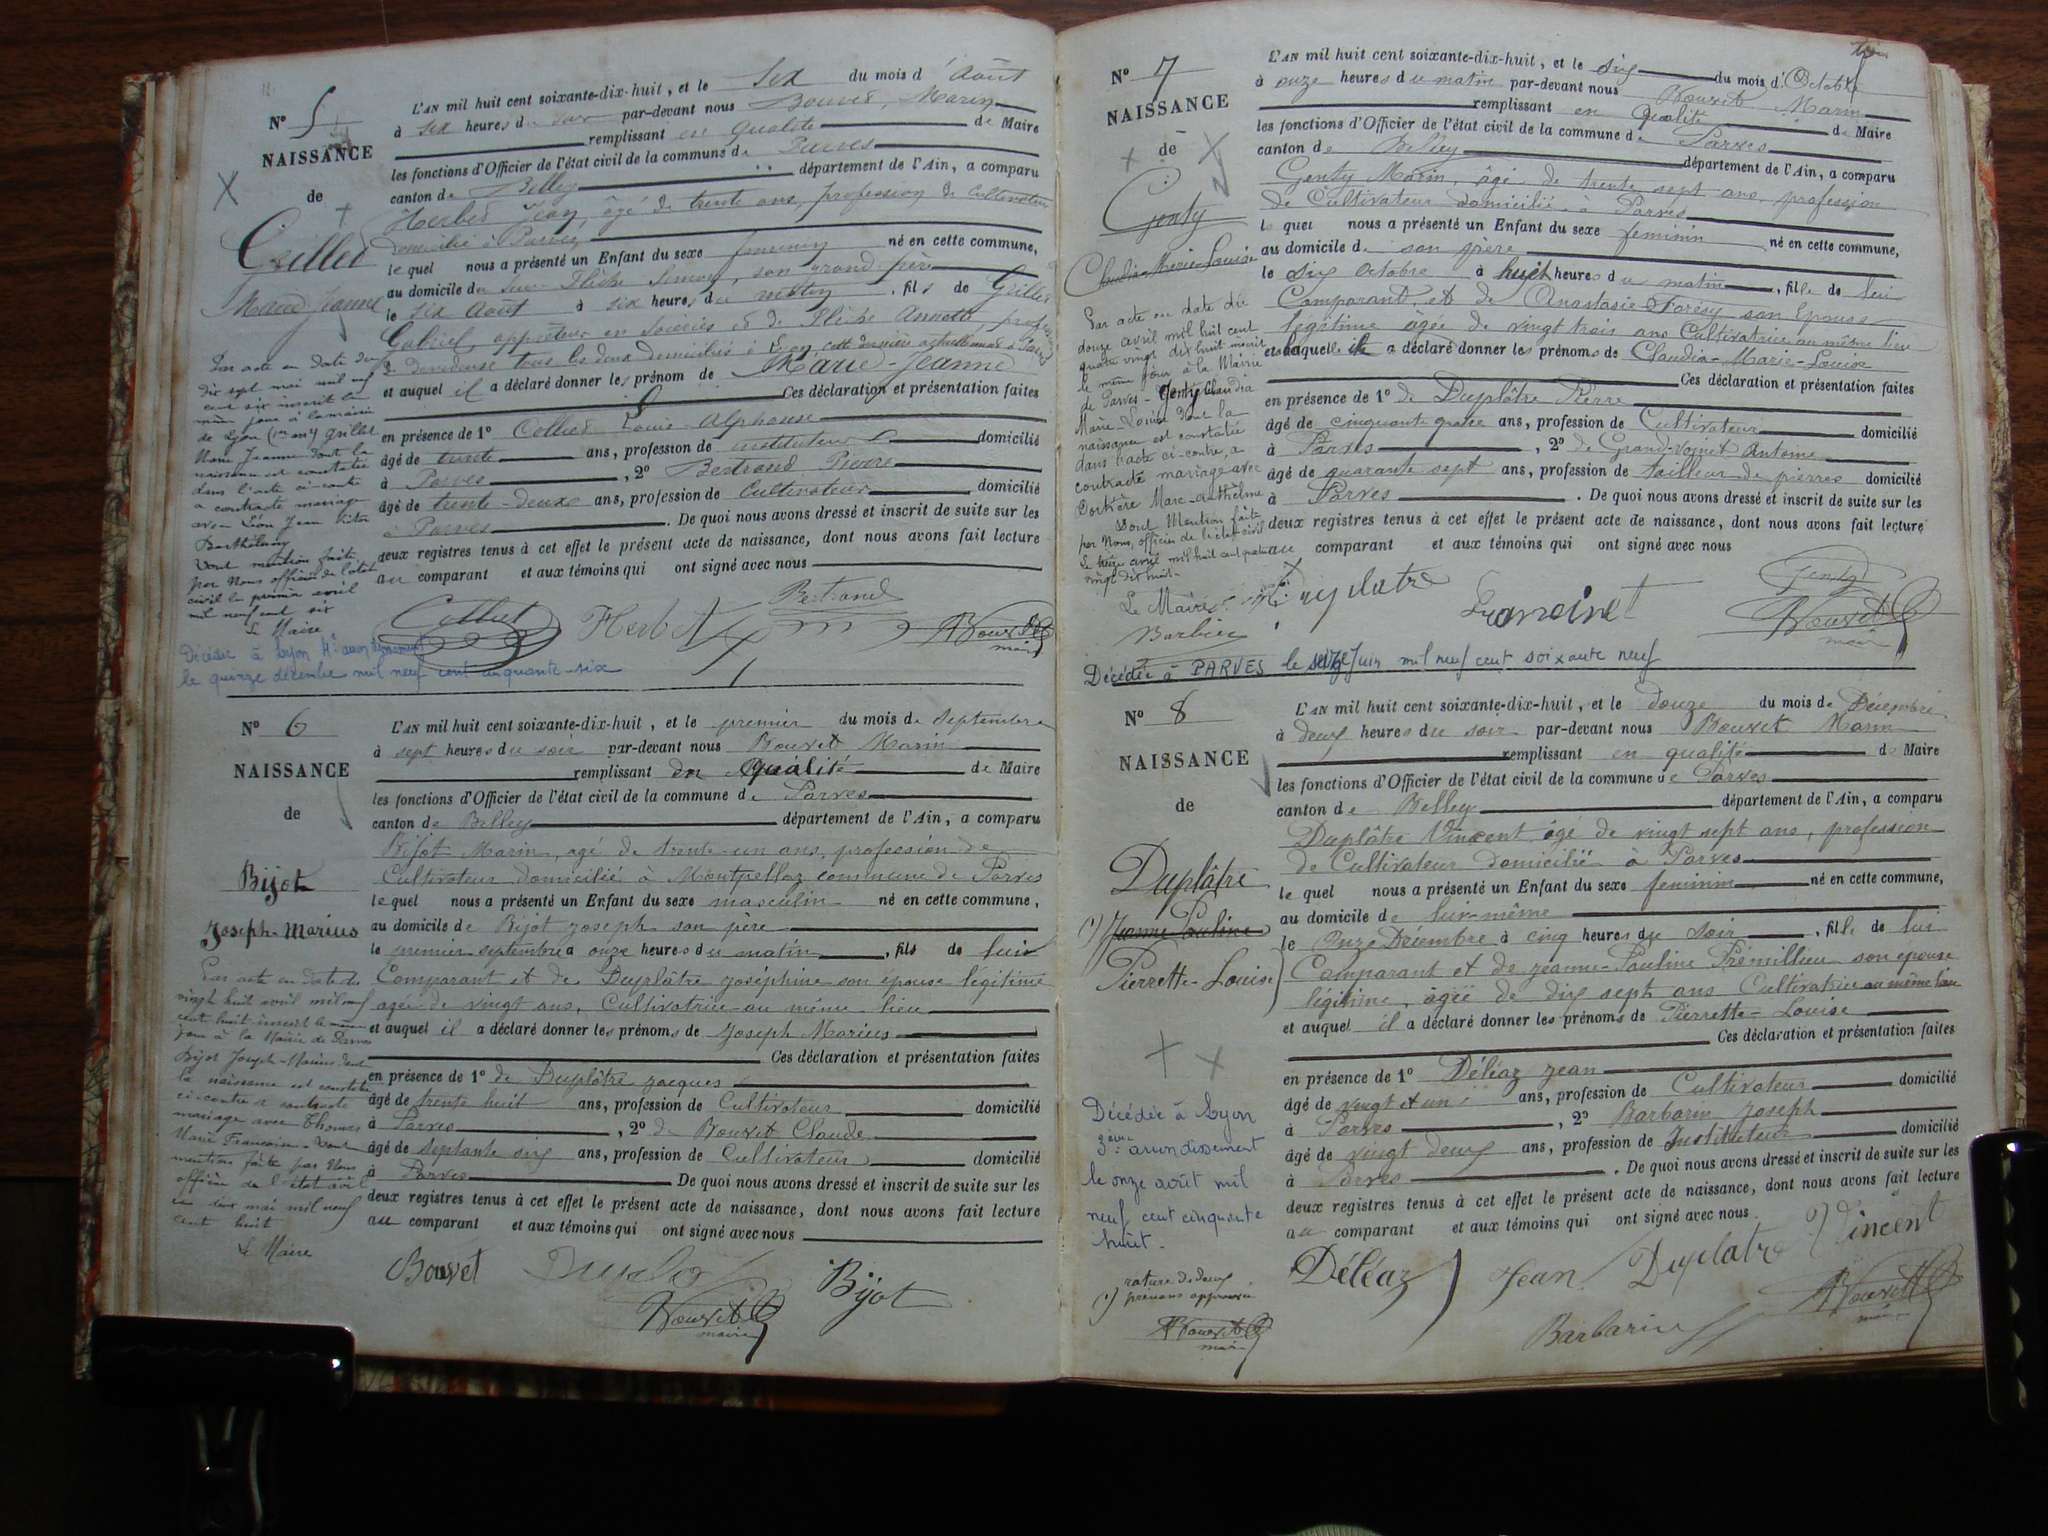 N° 5
NAISSANCE
de
Grillet
Marie Jeanne
L'AN mil huit cent soixante-dix-huit, et le six du mois d'Août
à six heures du soir par-devant nous Bouvet, Marin
remplissant en qualité de Maire
les fonctions d'Officier de l'état civil de la commune de Parves
canton de Belley département de l'Ain, a comparu
Herbet Jean, âgé de trente ans, profession de Cultivateur
domicilié à Parves
le quel nous a présenté un Enfant du sexe féminin né en cette commune,
au domicile du sieur son grand père
le six Août à six heures du matin, fils de Grillet
Gabriel, apprêteur en soieries et de Annette
dévideuse tous les deux domiciliés à Lyon cette dernière actuellement à Parves
et auquel il a déclaré donner les prénom de Marie-Jeanne
Ces déclaration et présentation faites
en présence de 1° Collet Louis Alphonse
âgé de trente ans, profession de instituteur domicilié
à Parves, 2° Bertrand Pierre
âgé de trente-deux ans, profession de Cultivateur domicilié
à Parves. De quoi nous avons dressé et inscrit de suite sur les
deux registres tenus à cet effet le présent acte de naissance, dont nous avons fait lecture
au comparant et aux témoins qui ont signé avec nous
Par acte en date du
dix sept mai mil neuf
cent six inscrit le
même jour à la mairie
de Lyon Grillet
Marie Jeanne dont la
naissance est constatée
dans l'acte ci-contre
a contracté mariage
avec Léon Jean Victor
Barthélemy
Dont mention faite
par Nous officier de l'état
civil le
mil neuf cent six
Le Maire
Collet Herbet Bertrand Bouvet
maire
Décédée à Lyon 4e arrondissement
le quinze décembre mil neuf cent cinquante-six
N° 6
NAISSANCE
de
Bijot
Joseph-Marius
L'AN mil huit cent soixante-dix-huit, et le premier du mois de Septembre
à sept heures du soir par-devant nous Bouvet Marin
remplissant en qualité de Maire
les fonctions d'Officier de l'état civil de la commune de Parves
canton de Belley département de l'Ain, a comparu
Bijot Marin, agé de trente-un ans, profession de
Cultivateur domicilié à Montpellaz commune de Parves
le quel nous a présenté un Enfant du sexe masculin né en cette commune,
au domicile de Bijot Joseph son père
le premier septembre à onze heures du matin, fils de lui
Comparant et de Duplâtre Joséphine son épouse légitime
agée de vingt ans, Cultivatrice au même lieu
et auquel il a déclaré donner les prénoms de Joseph Marius
Ces déclaration et présentation faites
en présence de 1° de Duplâtre Jacques
âgé de trente huit ans, profession de Cultivateur domicilié
à Parves, 2° de Bouvet Claude
âgé de septante six ans, profession de Cultivateur domicilié
à Parves De quoi nous avons dressé et inscrit de suite sur les
deux registres tenus à cet effet le présent acte de naissance, dont nous avons fait lecture
au comparant et aux témoins qui ont signé avec nous
Par acte en date du
vingt huit avril mil neuf
cent huit inscrit le même
jour à la Mairie de Parves
Bijot Joseph-Marius dont
la naissance est constatée
ci-contre a contracté
mariage avec Thomas
Marie Françoise. Dont
mention faite par Nous
officier de l'état civil
le deux mai mil neuf
cent huit
Le Maire
Bouvet Duplatre Bijot
Bouvet
maire
N° 7
NAISSANCE
de
Genty
Claudia-Marie-Louise
L'AN mil huit cent soixante-dix-huit, et le six du mois d'Octobre
à onze heures du matin par-devant nous Bouvet Marin
remplissant en qualité de Maire
les fonctions d'Officier de l'état civil de la commune de Parves
canton de Belley département de l'Ain, a comparu
Genty Marin, âgé de trente sept ans, profession
de Cultivateur domicilié à Parves
le quel nous a présenté un Enfant du sexe féminin né en cette commune,
au domicile de son père
le six Octobre à huit heures du matin, fille de lui
Comparant, et de Anastasie Forésy son Epouse
légitime âgée de vingt trois ans Cultivatrice au même lieu
et à laquelle il a déclaré donner les prénoms de Claudia-Marie-Louise
Ces déclaration et présentation faites
en présence de 1° de Duplâtre Pierre
âgé de cinquante quatre ans, profession de Cultivateur domicilié
à Parves, 2° de Grand-Voinet Antoine
âgé de quarante sept ans, profession de tailleur de pierres domicilié
à Parves. De quoi nous avons dressé et inscrit de suite sur les
deux registres tenus à cet effet le présent acte de naissance, dont nous avons fait lecture
au comparant et aux témoins qui ont signé avec nous
Par acte en date du
douze avril mil huit cent
quatre vingt dix huit inscrit
le même jour à la Mairie
de Parves - Genty Claudia
Marie-Louise dont la
naissance est constatée
dans l'acte ci-contre, a
contracté mariage avec
Marc-Anthelme
Dont Mention faite
par Nous, officier de l'état civil
Le treize avril mil huit cent quatre
vingt dix huit.
Le Maire
Barbier
Duplatre Genty
Bouvet
maire
Décédée à PARVES le seize Juin mil neuf cent soixante neuf
N° 8
NAISSANCE
de
Duplâtre
(1) Jeanne Pauline
Pierrette-Louise
L'AN mil huit cent soixante-dix-huit, et le douze du mois de Décembre
à deux heures du soir par-devant nous Bouvet Marin
remplissant en qualité de Maire
les fonctions d'Officier de l'état civil de la commune de Parves
canton de Belley département de l'Ain, a comparu
Duplâtre Vincent âgé de vingt sept ans, profession
de Cultivateur domicilié à Parves
le quel nous a présenté un Enfant du sexe féminin né en cette commune,
au domicile de lui-même
le Onze Décembre à cinq heures du soir, fille de lui
Comparant et de Jeanne-Pauline Prémillieu son epouse
légitime, âgée de dix sept ans Cultivatrice au même lieu
et auquel il a déclaré donner les prénoms de Pierrette-Louise
Ces déclaration et présentation faites
en présence de 1° Déléaz Jean
âgé de vingt et un ans, profession de Cultivateur domicilié
à Parves, 2° Barbarin Joseph
âgé de vingt deux ans, profession de Instituteur domicilié
à Parves. De quoi nous avons dressé et inscrit de suite sur les
deux registres tenus à cet effet le présent acte de naissance, dont nous avons fait lecture
au comparant et aux témoins qui ont signé avec nous.
Décédée à Lyon
3ème arrondissement
le onze août mil
neuf cent cinquante
huit.
(1) rature de deux
prénoms approuvée
Bouvet
maire
Déléaz Jean Duplatre Vincent
Barbarin Bouvet
maire